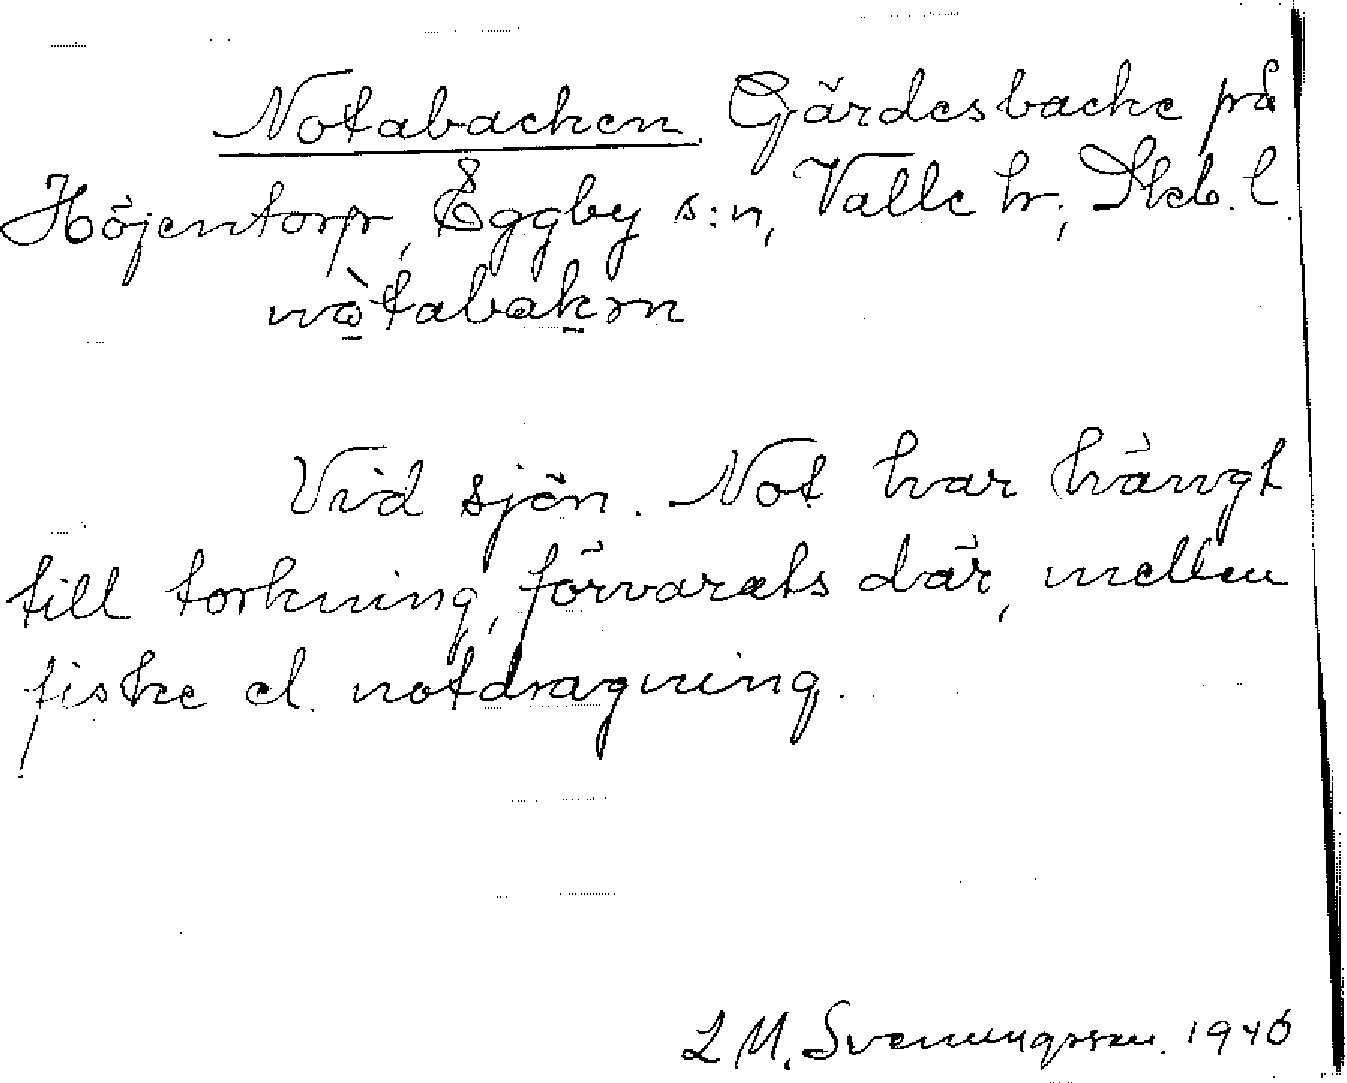 Notabacken. Gärdesbacke på
Höjentorp, Eggby s:n, Valle hr, Skb. l.
nò̱tabak̤ɔn
Vid sjön. Not har hängt
till torkning, förvarats där, mellan
fiske el. notdragning.
L M. Svenungsson. 1946